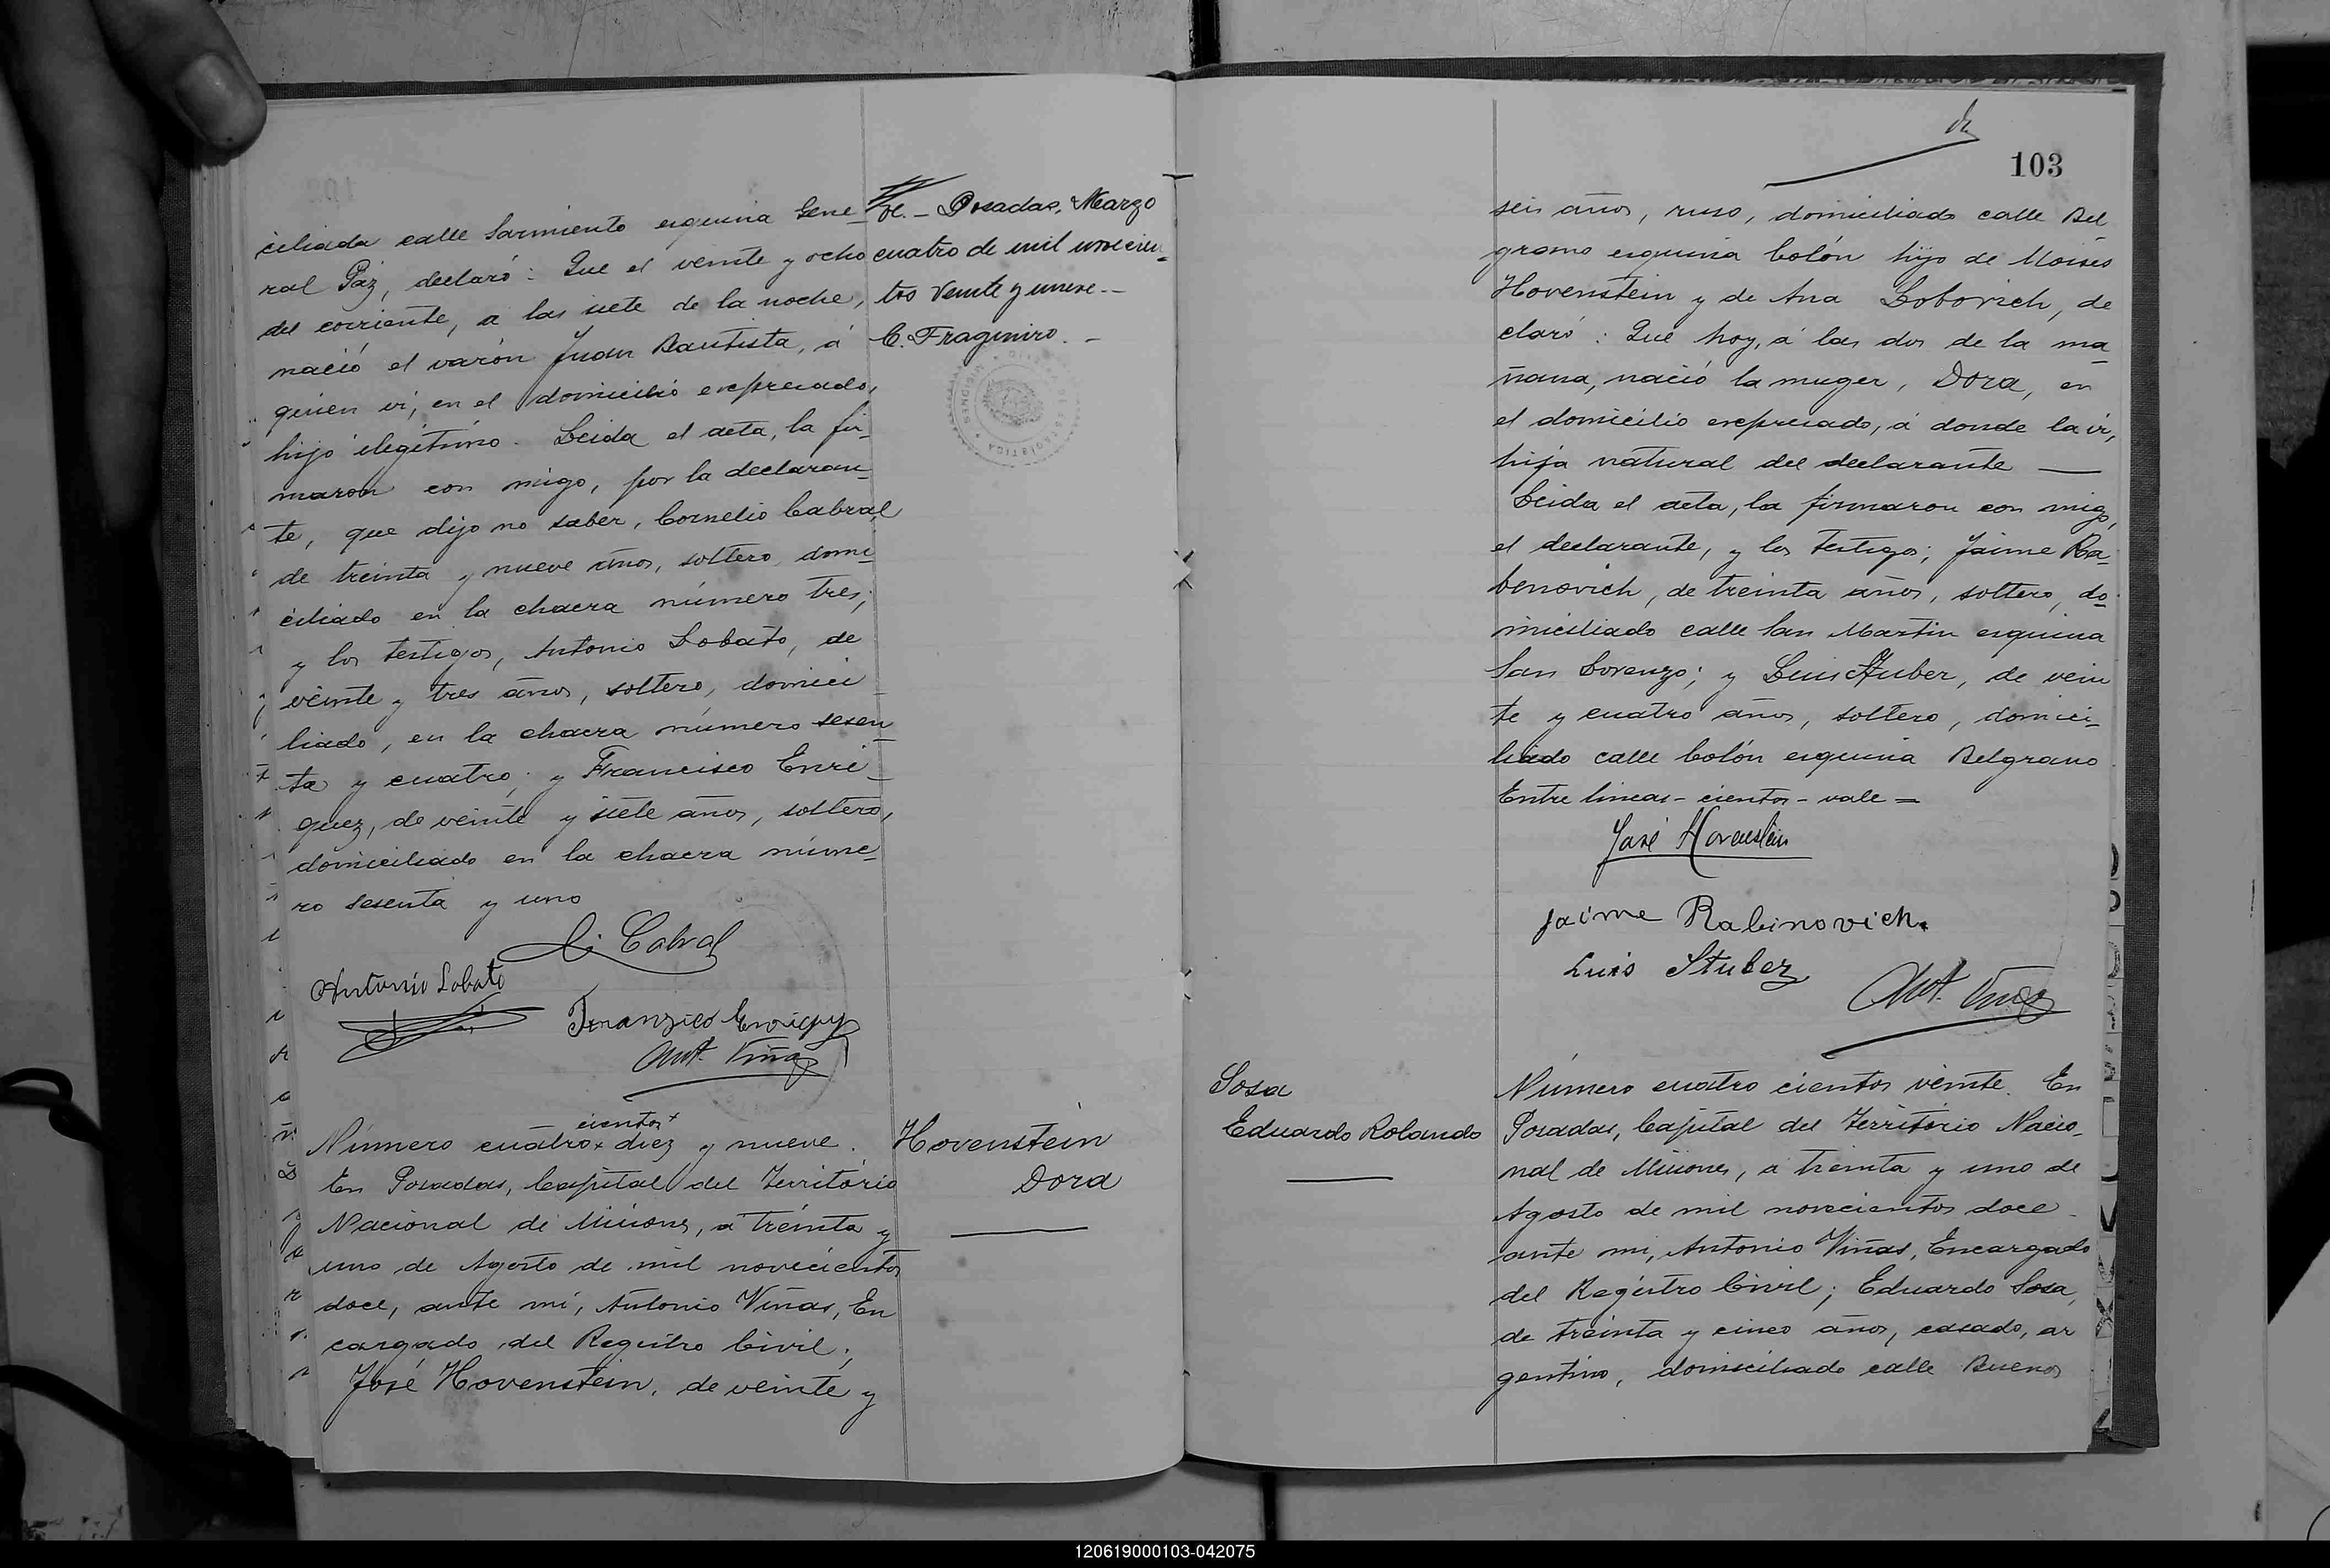 ciliada calle Sarmiento esquina Gene_
ral Paz, declaró: Que el veinte y ocho
del corriente, a las siete de la noche,
nació el varón Juan Bautista, á
quien ví, en el domicilio expresado,
hijo ilegítimo. Leida el acta, la fir_
maron con migo, por la declaran_
te, que dijo no saber, Cornelio Cabral,
de treinta y nueve años, soltero, domi_
ciliado en la chacra número tres;
y los testigos, Antonio Lobato, de
veinte y tres años, soltero, domici_
liado, en la chacra número sesen_
ta y cuatro; y Francisco Enri_
quez, de veinte y siete años, soltero,
domiciliado en la chacra núme_
ro sesenta y uno
C. Cabral
Antonio Lobato
Franzico Enriquez
Ant. Viñas
Posadas, Marzo
cuatro de mil novecien_
tos veinte y nueve.-
C. Fragueiro.-
cientos
Número cuatro diez y nueve.
En Posadas, Capital del Territorio
Nacional de Misiones, a treinta y
uno de Agosto de mil novecientos
doce, ante mí, Antonio Viñas, En
cargado del Registro Civil;
José Hovenstein, de veinte y
Hovenstein
Dora
103
seis años, ruso, domiciliado calle Bel_
grano esquina Colón hijo de Moises
Hovenstein y de Ana Lobovich, de
claró: Que hoy, á las dos de la ma_
ñana, nació la muger, Dora, en
el domicilio expresado, á donde la ví,
hija natural del declarante
Leida el acta, la firmaron con migo,
el declarante, y los testigos; Jaime Ra_
benovich, de treinta años, soltero, do_
miciliado calle San Martin esquina
San Lorenzo; y Luis Stuber, de vein
te y cuatro años, soltero, domici_
liado calle Colón esquina Belgrano
Entre lineas - cientos - vale =
José Hovenstein
Jaime Rabinovich.
Luis Stuber
Ant. Viñas
Sosa
Eduardo Rolando
Número cuatro cientos veinte. En
Posadas, Capital del Territorio Nacio_
nal de Misiones, a treinta y uno de
Agosto de mil novecientos doce
ante mi, Antonio Viñas, Encargado
del Registro Civil; Eduardo Sosa,
de treinta y cinco años, casado, ar
gentino, domiciliado calle Buenos
120619000103-042075